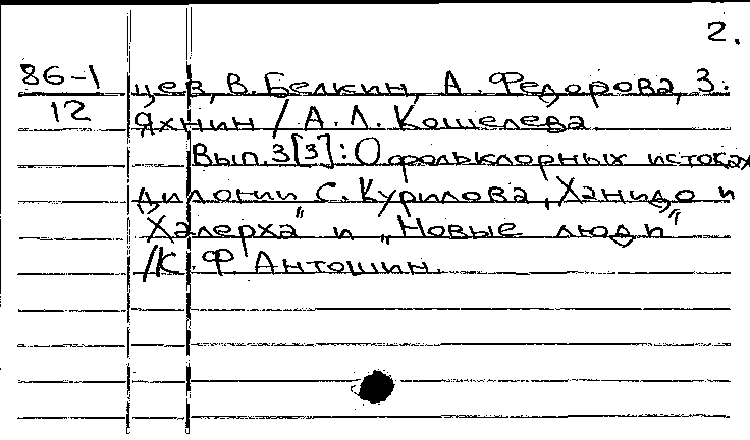 2.
86-1
12
цев, В. Белкин, А. Федорова, З.
Яхнин / А. Л. Кошелева
Вып. 3 [3]: О фольклорных истоках
дилогии С. Курилова „Ханидо и
Халерха" и „Новые люди"
/К. Ф. Антошин.